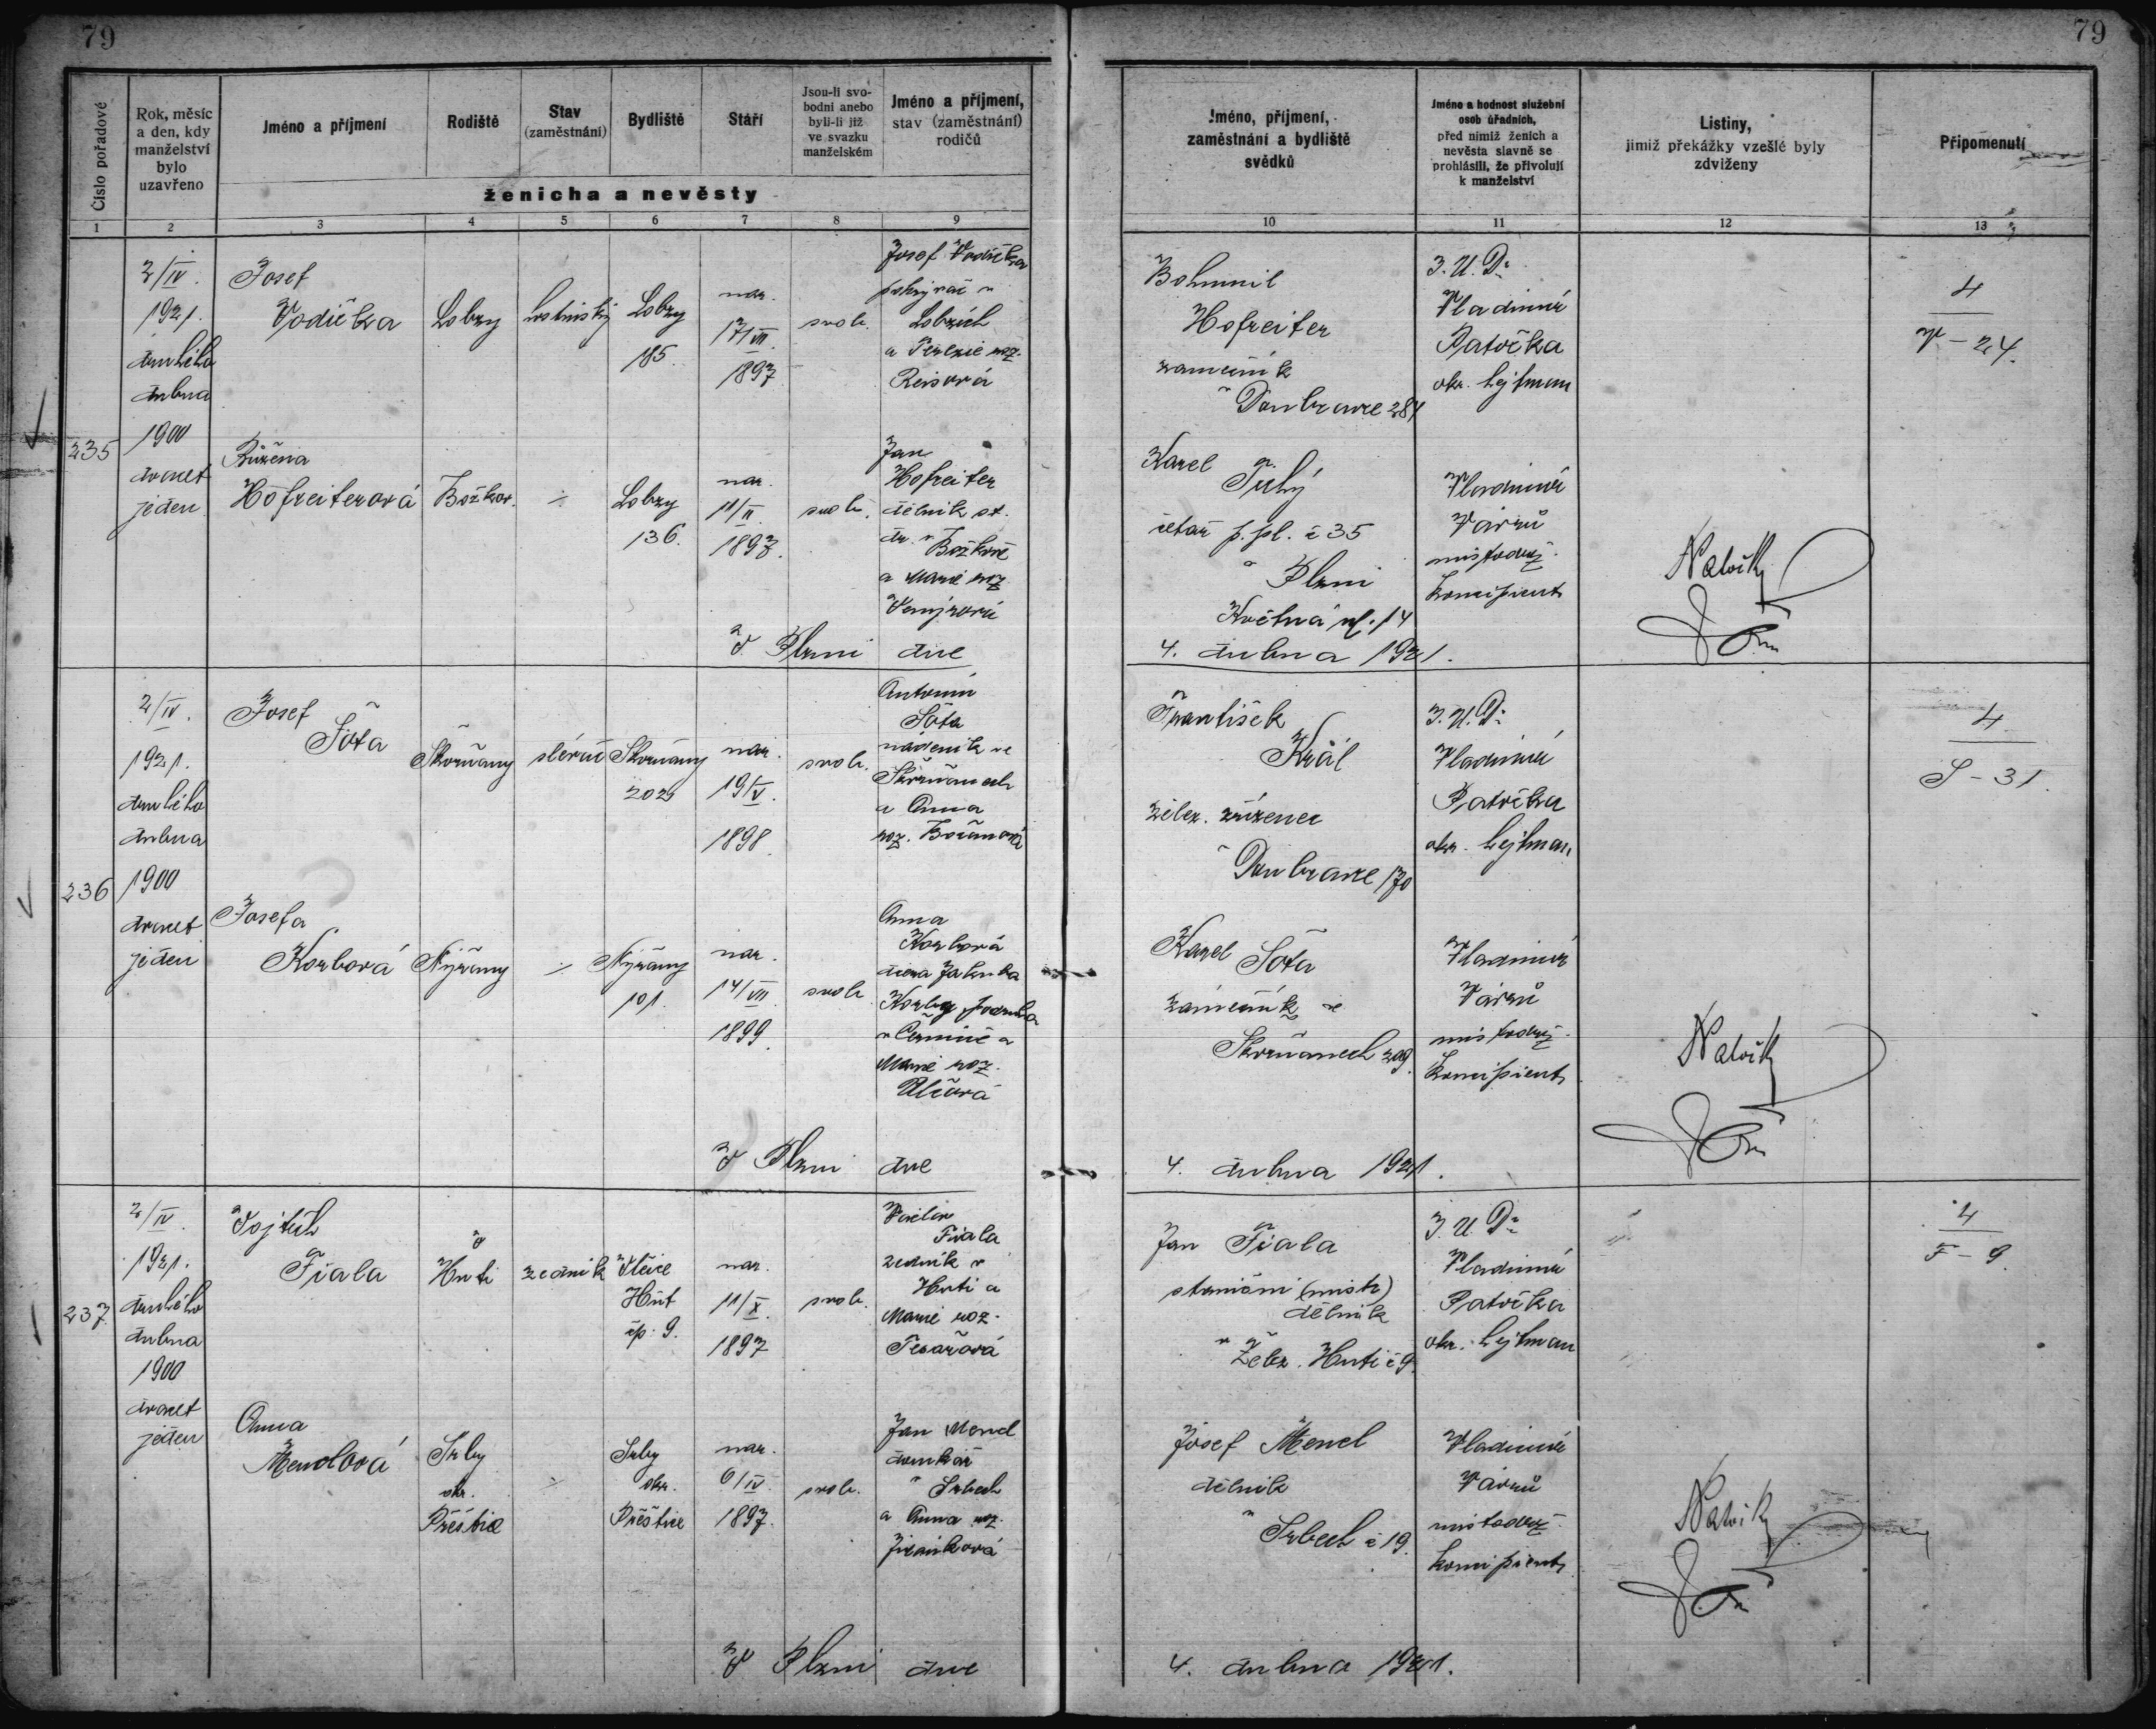 79
79
Číslo pořadové
Rok, měsíc
a den, kdy
manželství
bylo
uzavřeno
Jméno a příjmení
Rodiště
Stav
(zaměstnání)
Bydliště
Stáří
Jsou-li svo-
bodni anebo
byli-li již
ve svazku
manželském
Jméno a příjmení,
stav (zaměstnání)
rodičů
ženicha a nevěsty
Jméno, příjmení,
zaměstnání a bydliště
svědků
Jméno a hodnost služební
osob úřadních,
před nimiž ženich a
nevěsta slavně se
prohlásili, že přivolují
k manželství
Listiny,
jimiž překážky vzešlé byly
zdviženy
Připomenutí
1 2 3 4 5 6 7 8 9 10 11 12 13
235
2/IV.
1921.
druhého
dubna
1900
dvacet
jeden
Josef
Vodička
Lobzy
Lobzy
185.
nar.
17/VII.
1897.
svob.
Josef Vodička
pokrývač v
Lobzích
a Terezie roz.
Reisová
Růžena
Hofreiterová
Božkov.
Lobzy
136.
nar.
11/II.
1897.
svob.
Jan
Hofreiter
dělník st.
dr. v Božkově
a Marie roz.
Bohumil
Hofreiter
zámečník
v Doubravce 281
Karel Tuhý
četař p. pl. č 35
v Plzni
Květná ul. 14
J. U. Dr
Vladimír
Patočka
okr. hejtman
Vladimír
Vávrů
místodrž.
koncipient
4
V – 24.
V Plzni dne 4. dubna 1921.
236
2/IV.
1921.
druhého
dubna
1900
dvacet
jeden
Josef
Šota
Skvrňany
slévač
Skvrňany
202
nar.
19/V.
1898.
svob.
Antonín
Šota
nádeník ve
Skvrňanech
a Anna
roz.
Josefa
Korbová
Nýřany
Nýřany
101.
nar.
14/VII.
1899.
svob.
Anna
Korbová
dcera Jakuba
Korby
Marie roz.
František
Král
želez. zřízenec
v Doubravce 170
Karel Šota
zámečník ve
Skvrňanech 209.
J. U. Dr
Vladimír
Patočka
okr. hejtman
Vladimír
Vávrů
místodrž.
koncipient
4
S – 31.
V Plzni dne 4. dubna 1921.
237
2/IV.
1921.
druhého
dubna
1900
dvacet
jeden
Vojtěch
Fiala
Huti
zedník
Huť
čp. 9.
nar.
11/X.
1897
svob.
Václav
Fiala
zedník v
Huti a
Marie roz.
Tesařová
Anna
Menclová
Srby
okr.
Přeštice
Srby
okr.
Přeštice
nar.
6/IV.
1897.
svob.
Jan Mencl
domkář
v Srbech
a Anna roz.
Jan Fiala
staniční (místr)
dělník
v Želez. Huti č 9.
Josef Mencl
dělník
v Srbech č 19.
J. U. Dr
Vladimír
Patočka
okr. hejtman
Vladimír
Vávrů
místodrž.
koncipient
4
F – 9.
V Plzni dne 4. dubna 1921.